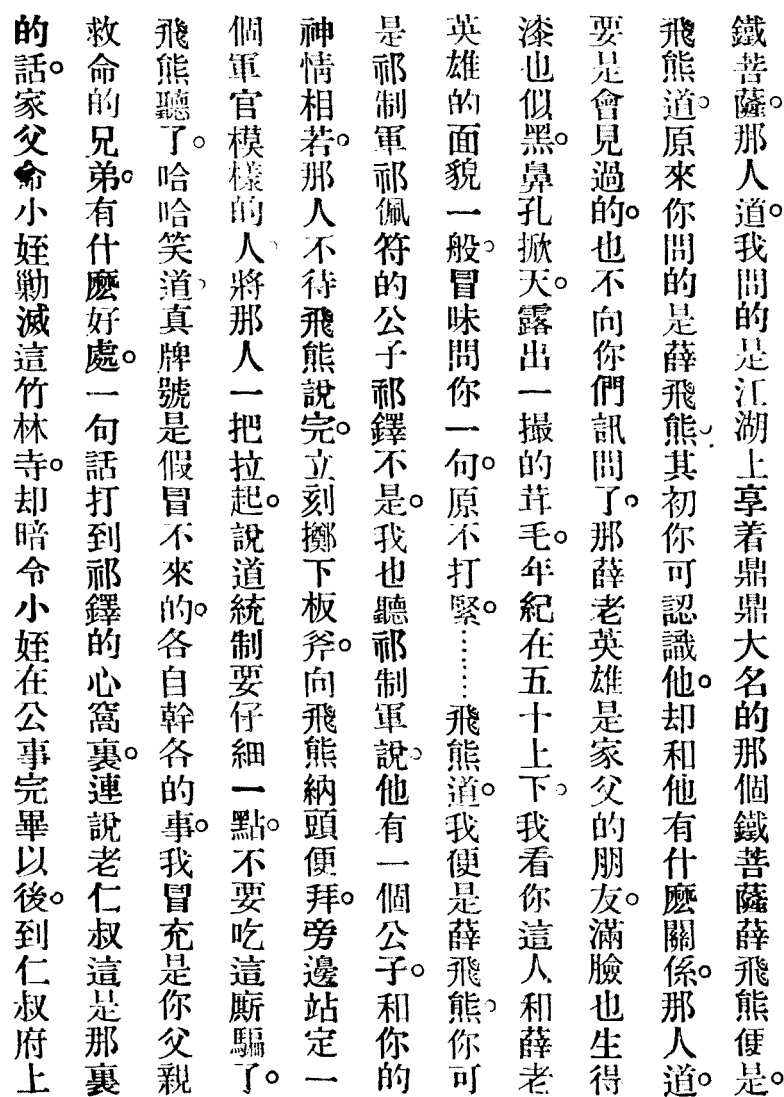 鐵菩薩。那人道。我問的是江湖上享着鼎鼎大名的那個鐵菩薩薛飛熊便是。
飛熊道。原來你問的是薛飛熊。其初你可認識他。却和他有什麽關係。那人道。
要是會見過的。也不向你們訊問了。那薛老英雄是家父的朋友。滿臉也生得
漆也似黑。鼻孔掀天。露出一撮的茸毛。年紀在五十上下。我看你這人和薛老
英雄的面貌一般。冒昧問你一句。原不打緊。……飛熊道。我便是薛飛熊。你可
是祁制軍祁佩符的公子祁鐸不是。我也聽祁制軍說。他有一個公子。和你的
神情相若。那人不待飛熊說完。立刻擲下板斧。向飛熊納頭便拜。旁邊站定一
個軍官模樣的人、將那人一把拉起。說道統制要仔細一點。不要吃這廝騙了。
飛熊聽了。哈哈笑道、真牌號是假冒不來的。各自幹各的事。我冒充是你父親
救命的兄弟。有什麽好處。一句話打到祁鐸的心窩裏。連說老仁叔這是那裏
的話。家父命小姪勦滅這竹林寺。却暗令小姪在公事完畢以後。到仁叔府上